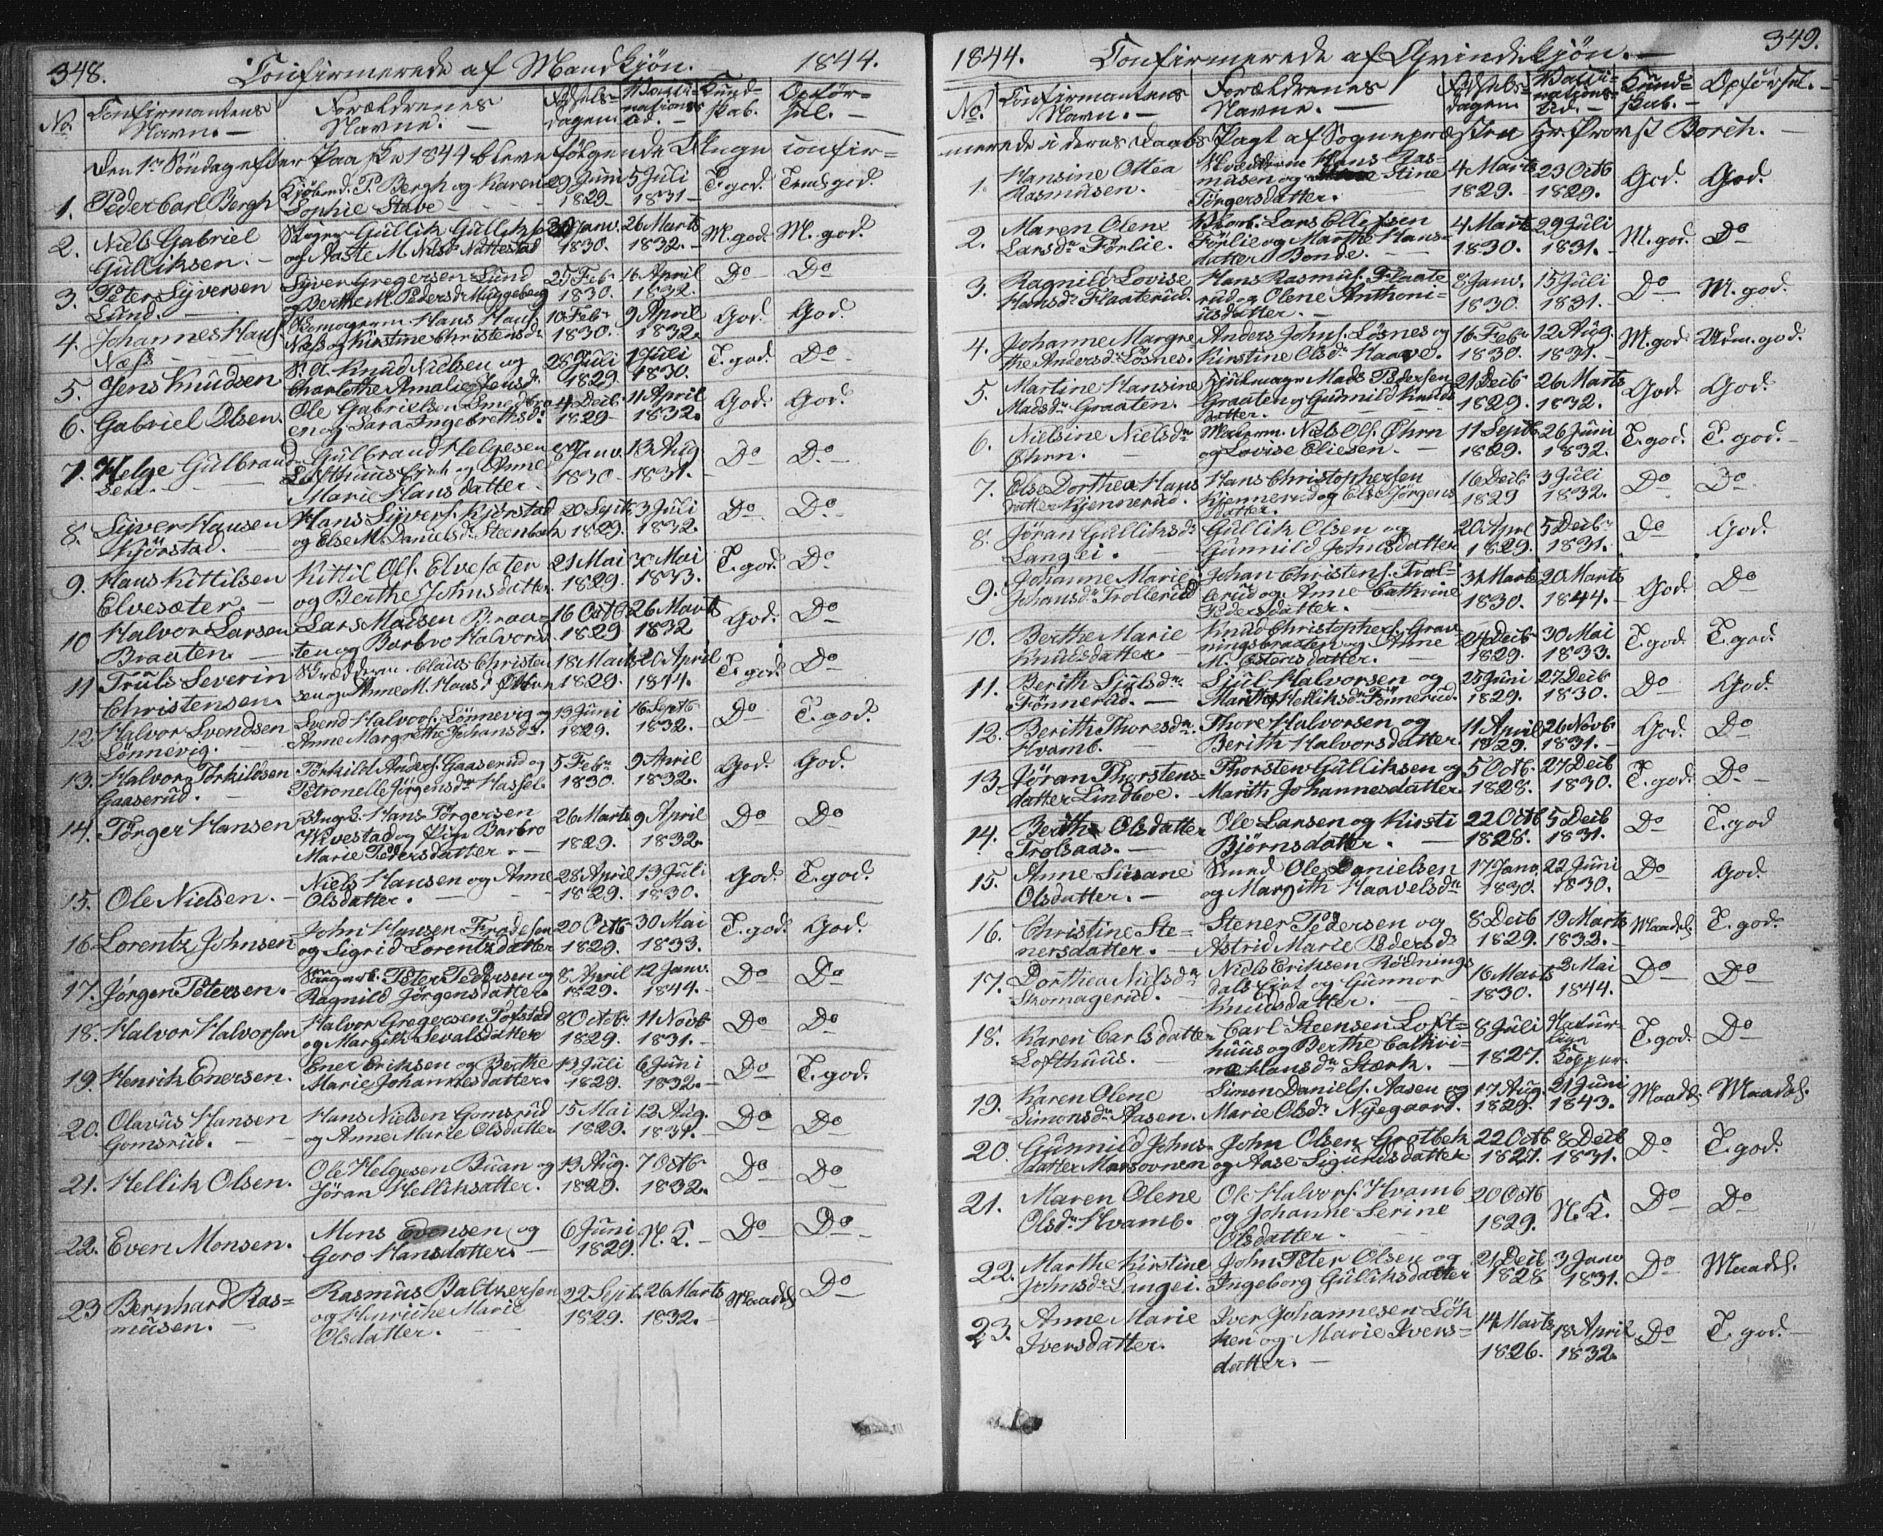 348. Confirmerede af Mandkjøn. 1844.
No. Confirmantens Navn. — Forældrenes Navne. — Fødsels-dagen. Vacci-nations ad. — Kund-skab. Opfør-sel. —
Den 1ste Søndag efter Paaske 1844 bleve følgende Unge confir=
1. Peder Carl Bergh Kjøbmd. P. Bergh og Karen Sophie Stabe 29 Juni 1829 5 Juli 1831 T. god. Temel. god.
2. Niels Gabriel Gulliksen. — Gullik Gulliks. og Aaste M. Nilsdr. Nattestad 20 Janv. 1830. 26 Marts 1832. M. god. M. god.
3. Peter Syversen Lund. Syver Gregersen Lund og Berthe M. Pedersdr. Muggeberg 25 Feb. 1830. 16 April 1832. Do Do
4. Johannes Hans. Næss Hans Hans. Næss og Kirstine Christensdr. 10 Feb. 1830. 9 April 1832. God. God.
5. Jens Knudsen Knud Nielsen og Charlotte Amalie Jensdr. 28 Juli 1829. 1 Juli 1830. T. god. Do
6. Gabriel Olsen. Ole Gabrielsen Smedbro en og Sara Ingebrethsdr. 4 Decb. 1829 11 April 1832. God. God.
7. Helge Gulbrand sen. Gulbrand Helgesen Lofthuus og Anne Marie Hansdatter. 8 Janv. 1830 13 Aug. 1831. Do Do
8. Syver Hansen Kjørstad. Hans Syvers. Kjørstad og Else M. Danielsdr. Steenbæk 20 Sept. 1829. 3 Juli 1832. Do Do
9. Hans Kittilsen Elvesæter. Kittil Ols. Elvesæter og Berthe Johnsdatter. 21 Mai 1829. 30 Mai 1833. T. god. Do
10 Halvor Larsen Braaten. Lars Madsen Braa=ten og Barbro Halvorsd. 16 Octb. 1829. 26 Marts 1832 God. Do
11 Truls Severin Christensen. Claus Christen sen og Anne M. Hansd. 18 Marts 1829. 20 April 1844. T. god. Do
12 Halvor Svendsen Lønnevig. Svend Halvors. Lønnevig og Anne Margrethe Johansdr. 13 Juni 1829. 16 Septb. 1832. Do T. god.
13. Halvor Torkildsen Gaaserud. Torkild Anders. Gaaserud og Petronelle Jørgensdr. Hassel. 5 Feb. 1830. 9 April 1832. God. God.
14. Torger Hansen Hans Torgersen Vivestad og Pige Barbro Marie Pedersdatter. 26 Marts 1829. 9 April 1832. Do Do
15. Ole Nielsen. Niels Hansen og Anne Olsdatter. 28 April 1829. 13 Juli 1830. God. T. god.
16 Lorentz Johnsen John Hansen og Sigrid Lorentzdatter 20 Octb. 1829. 30 Mai 1833. T. god. God.
17. Jörgen Petersen. Peter Pedersen og Ragnild Jörgensdatter. 8 April 1829. 12 Janv. 1844. Do Do
18. Halvor Halvorsen Halvor Gregersen Tofstad og Margith Sevalsdatter 8 Octob. 1829. 11 Novb. 1831. Do Do
19. Henrik Enersen. Ener Eriksen og Berthe Marie Johannesdatter. 13 Juli 1829. 6 Juni 1832. Do T. god.
20. Olavus Hansen Gomsrud. Hans Nielsen Gomsrud og Anne Marie Olsdatter 15 Mai 1829. 13 Aug. 1831. Do Do
21. Hellik Olsen. Ole Helgesen Buan og Jøran Helliksdatter. 13 Aug. 1829. 7 Octb. 1832. Do Do
22. Even Monsen. Mons Evensen og Goro Hansdatter. 6 Juni 1829. N. K. Do Do
23 Bernhard Ras=musen. Rasmus Baltzersen og Hinriche Marie Olsdatter. 22 Sept. 1829. 26 Marts 1832. Maadel. Do
1844. Confirmerede af Qvindekjøn. — 349.
No. Confirmantens Navn. — Forældrenes Navne. — Fødsels-dagen. Vacci-nations-tid. — Kund-skab. — Opførsel. —
merede i deres Daabs Pagt af Sognepræsten Hr. Provst Borch. —
1. Hansine Othea Rasmusen. Hans Ras-musen og Stine Torgersdatter. 4 Marts 1829. 23 Octb. 1829. God. God.
2. Maren Olene Larsdr. Førlie. Lars Ellefsen Førlie og Marthe Hans-datter Bonde. 4 Marts 1830. 29 Juli 1831. M. god. Do
3. Ragnild Lovise Hansdr. Flaaterud. Hans Rasmus. Flaate-rud og Olene Anthoni-usdatter. 8 Janv. 1830. 15 Juli 1831. Do M. god.
4. Johanne Margre the Andersdr. Løsnes. Anders Johns. Løsnes og Kirstine Olsdr. Haave. 16 Feb. 1830. 12 Aug. 1831. M. god. Udm. god.
5. Martine Hansine Madsdr. Graaten. Mads Pedersen Graaten og Gunnild Knuds datter. 21 Decb. 1829. 26 Marts 1832. God God.
6. Nielsine Nielsdr. Øhrn. Niels Ols. Øhrn og Lovise Eliesen. 11 Septb. 1829. 26 Juni 1832. T. god. T. god.
7. Else Dorthea Hans datter Kjennerud. Hans Christophersen Kjennerud og Else Jørgens datter. 16 Decb. 1829 3 Juli 1832. Do Do
8. Jøran Gulliksdr. Langei. Gullik Olsen og Gunnild Johnsdatter 20 April 1829. 5 Decb. 1831. Do God.
9. Johanne Marie Johansdr. Trollerud Johan Christens. Trol-lerud og Anne Cathrine Pedersdatter. 31 Marts 1830. 20 Marts 1844. God Do
10. Berthe Marie Knudsdatter. Knud Christophers. Grav-ningsbraaten og Anne M. Østensdatter. 24 Decb. 1829. 30 Mai 1833. T. god. T. god.
11. Berith Sjulsdr. Fønnerud. Sjul Halvorsen og Marthe Helliksdr. Fønnerud. 25 Juni 1829. 27 Decb. 1830. Do God.
12. Berith Thoresdr. Hvamb. Thore Halvorsen og Berith Halvorsdatter. 11 April 1829. 26 Novb. 1831. God. Do
13. Jøran Thorstens-datter Lindboe. Thorsten Gulliksen og Marith Johannesdatter. 5 Octb. 1828. 27 Decb. 1830. T. god. Do
14. Berthe Olsdatter Trolsaas. Ole Larsen og Kirsti Bjørnsdatter. 22 Octb. 1828. 5 Decb. 1831. Do T. god
15. Anne Susane Olsdatter. Smed Ole Danielsen og Margith Haavelsdr. 17 Janv. 1830. 22 Juni 1830. Do God
16. Christine Ste-nersdatter. Stener Pedersen og Astrid Marie Pedersdr. 8 Decb. 1829. 19 Marts 1832. Maadel. T. god.
17. Dorthea Nielsdr. Skomagerud. Niels Eriksen Rødnings dalsejet og Gunnor Knudsdatter. 16 Marts 1830. 2 Mai 1844. Do Do
18. Karen Carlsdatter Lofthuus. Carl Steensen Loft=huus og Berthe Cathri-ne Hansdr. Stærk. 8 Juli 1827. Natur-lige Kopper. T. god. Do
19. Karen Olene Simonsdr. Aasen. Simen Daniels. Aasen og Marie Olsdr. Nyegaard. 17 Aug. 1829. 21 Juni 1843. Maadel. Maadel.
20. Gunnild Johns-datter Masovnen John Olsen Grotbek og Aase Sigurdsdatter 22 Octb. 1827. 8 Decb. 1831. Do T. god.
21. Maren Olene Olsdr. Hvamb. Ole Halvors. Hvamb og Johanne Serine Olsdatter. 20 Octb. 1829. N. K. Do Do
22. Marthe Kirstine Johnsdr. Langei. John Peter Olsen og Ingeborg Gulliksdatter 21 Decb. 1828 3 Janv. 1831. Do Maadel.
23. Anne Marie Iversdatter. Iver Johannesen Løk ken og Marie Ivers-datter. 14 Marts 1826. 18 April 1832. Do T. god.